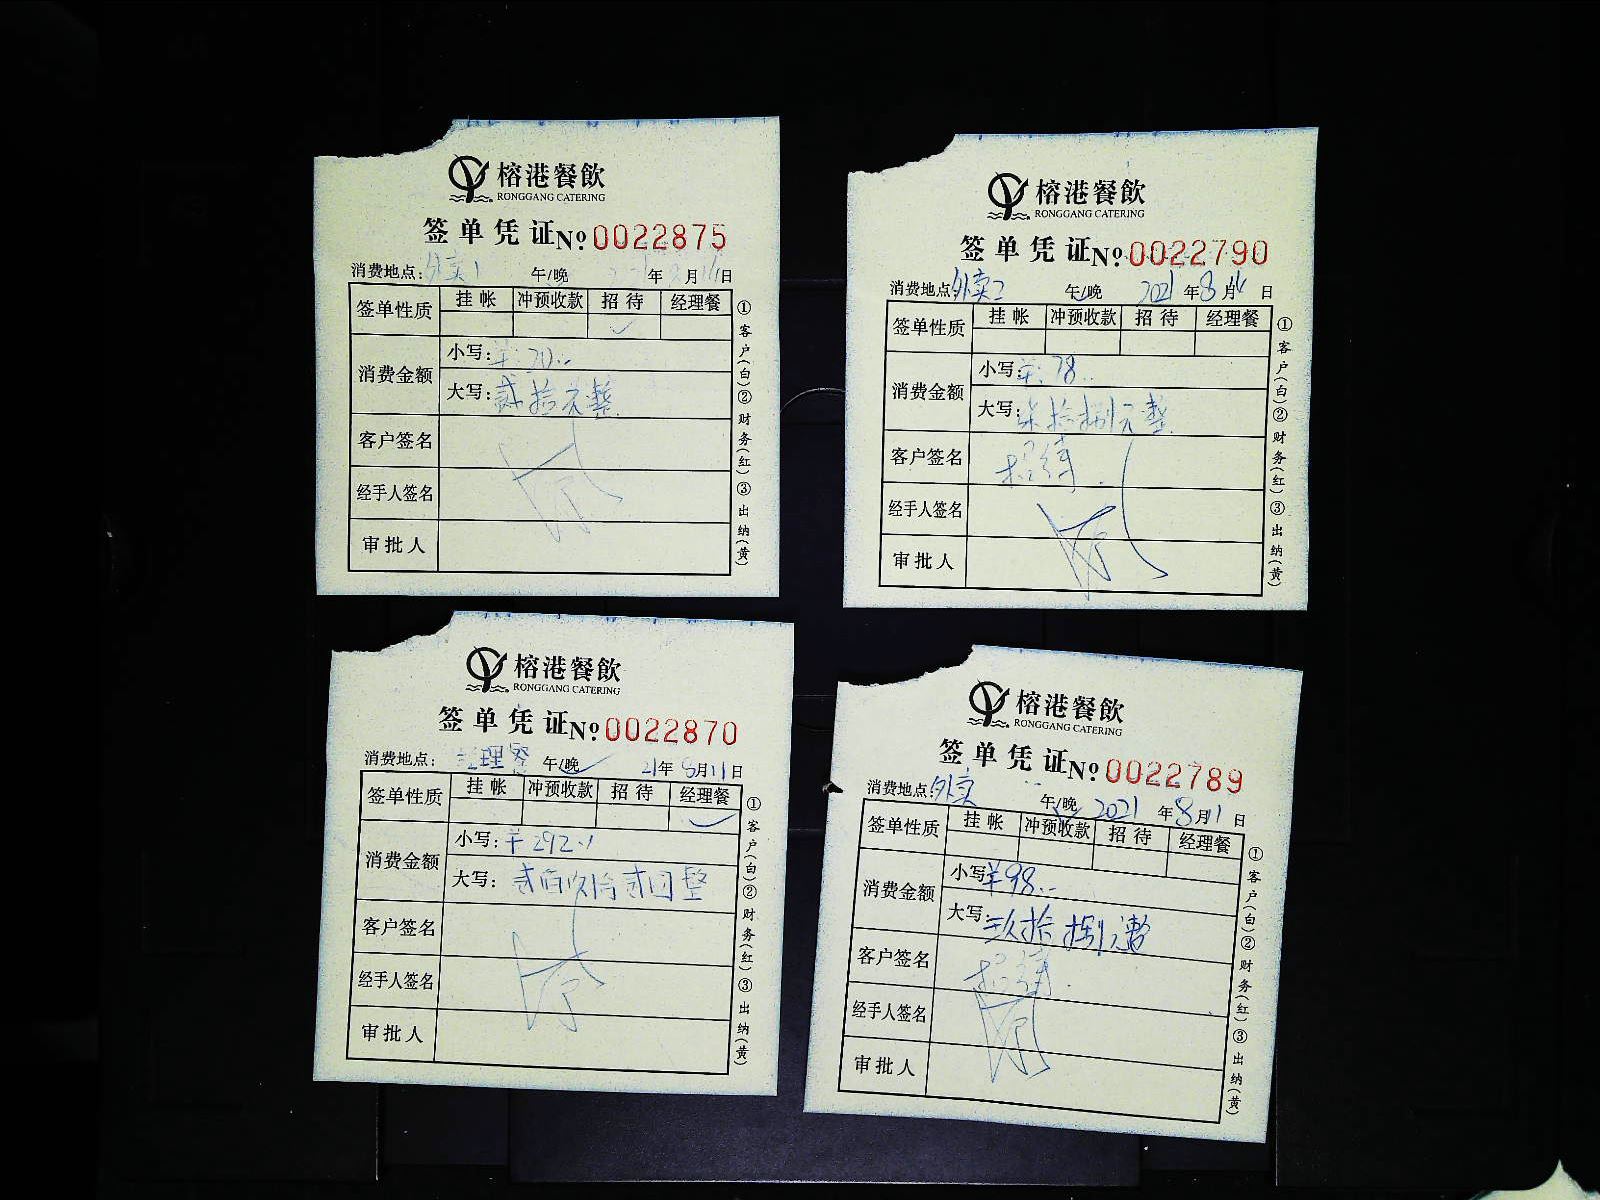 榕港餐飲
RONGGANG CATERING
签单凭证№0022875
消费地点:外卖1 午/晚 年8月14日
签单性质 挂帐 冲预收款 招待 经理餐
✓
消费金额 小写:¥:20..
大写:贰拾元整
客户签名
经手人签名
审批人
①客户(白)②财务(红)③出纳(黄)
榕港餐飲
RONGGANG CATERING
签单凭证№0022790
消费地点外卖2 午/晚 2021年8月14日
签单性质 挂帐 冲预收款 招待 经理餐
消费金额 小写:¥:78..
大写:柒拾捌元整
客户签名
经手人签名
审批人
①客户(白)②财务(红)③出纳(黄)
榕港餐飲
RONGGANG CATERING
签单凭证№0022870
消费地点:经理餐 午/晚✓ 21年8月11日
签单性质 挂帐 冲预收款 招待 经理餐
✓
消费金额 小写:¥292..
大写:贰佰玖拾贰圆整
客户签名
经手人签名
审批人
①客户(白)②财务(红)③出纳(黄)
榕港餐飲
RONGGANG CATERING
签单凭证№0022789
消费地点:外卖 午/晚 2021年8月11日
签单性质 挂帐 冲预收款 招待 经理餐
消费金额 小写¥98..
大写:玖拾捌元整
客户签名
经手人签名
审批人
①客户(白)②财务(红)③出纳(黄)